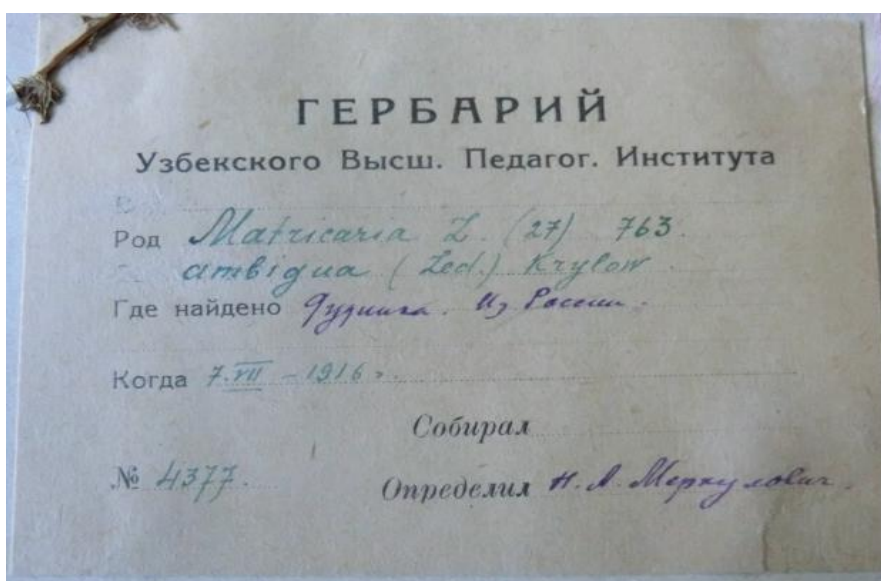 ГЕРБАРИЙ
Узбекского Высш. Педагог. Института
Род Matricaria L. (27) 763.
ambigua (Led.) Krylow.
Где найдено Из России.
Когда 7.VII – 1916 г.
Собирал
№ 4377.
Определил Н. А. Меркулович.